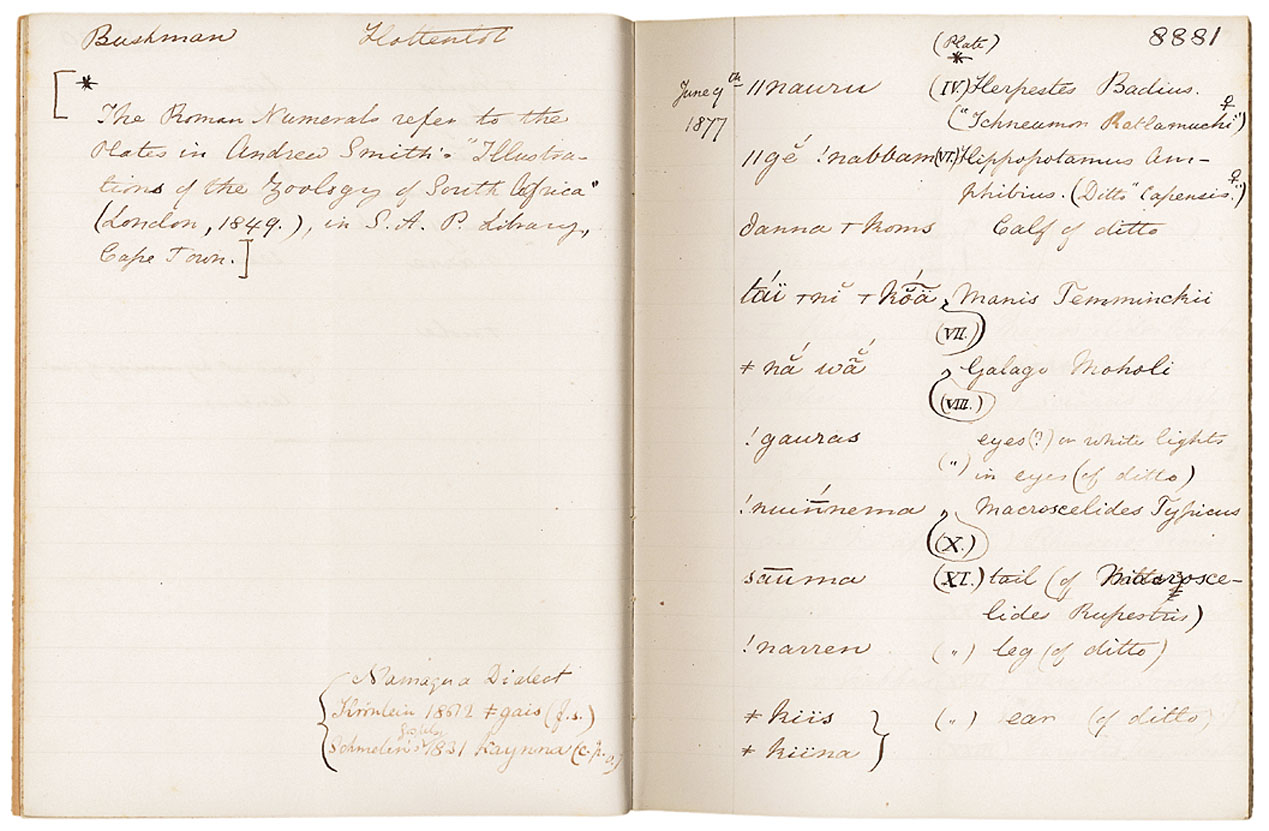 Bushman Hottentot
[*
The Roman Numerals refer to the
Plates in Andrew Smith's "Illustra-
tions of the Zoology of South Africa"
(London, 1849.), in S. A. P. Library,
Cape Town.]
Namaqua Dialect
1862 ǂgais (f.s.)
Schmelin's 1831 Kaynna (c.p.
(Plate) 8881
*
June 9th ǁnauru (IV.) Herpestes Badius.
1877 ("Ichneumon Ratlamuchi" ♀)
ǁgé̆ !nabbam (VI.) Hippopotamus Am-
phibius. (Ditto "Capensis." ♀)
danna + koms Calf of ditto
Manis Temminckii
(VII.)
ǂ nắ Galago Moholi
(VIII.)
!gauras eyes (?) or white lights
(") in eyes (of ditto)
Macroscelides Typicus
(X.)
sāuma (XI.) tail (of Macrosce-
lides Rupestris)
!narren (") leg (of ditto)
ǂ kiis } (") ear (of ditto)
ǂ kiina